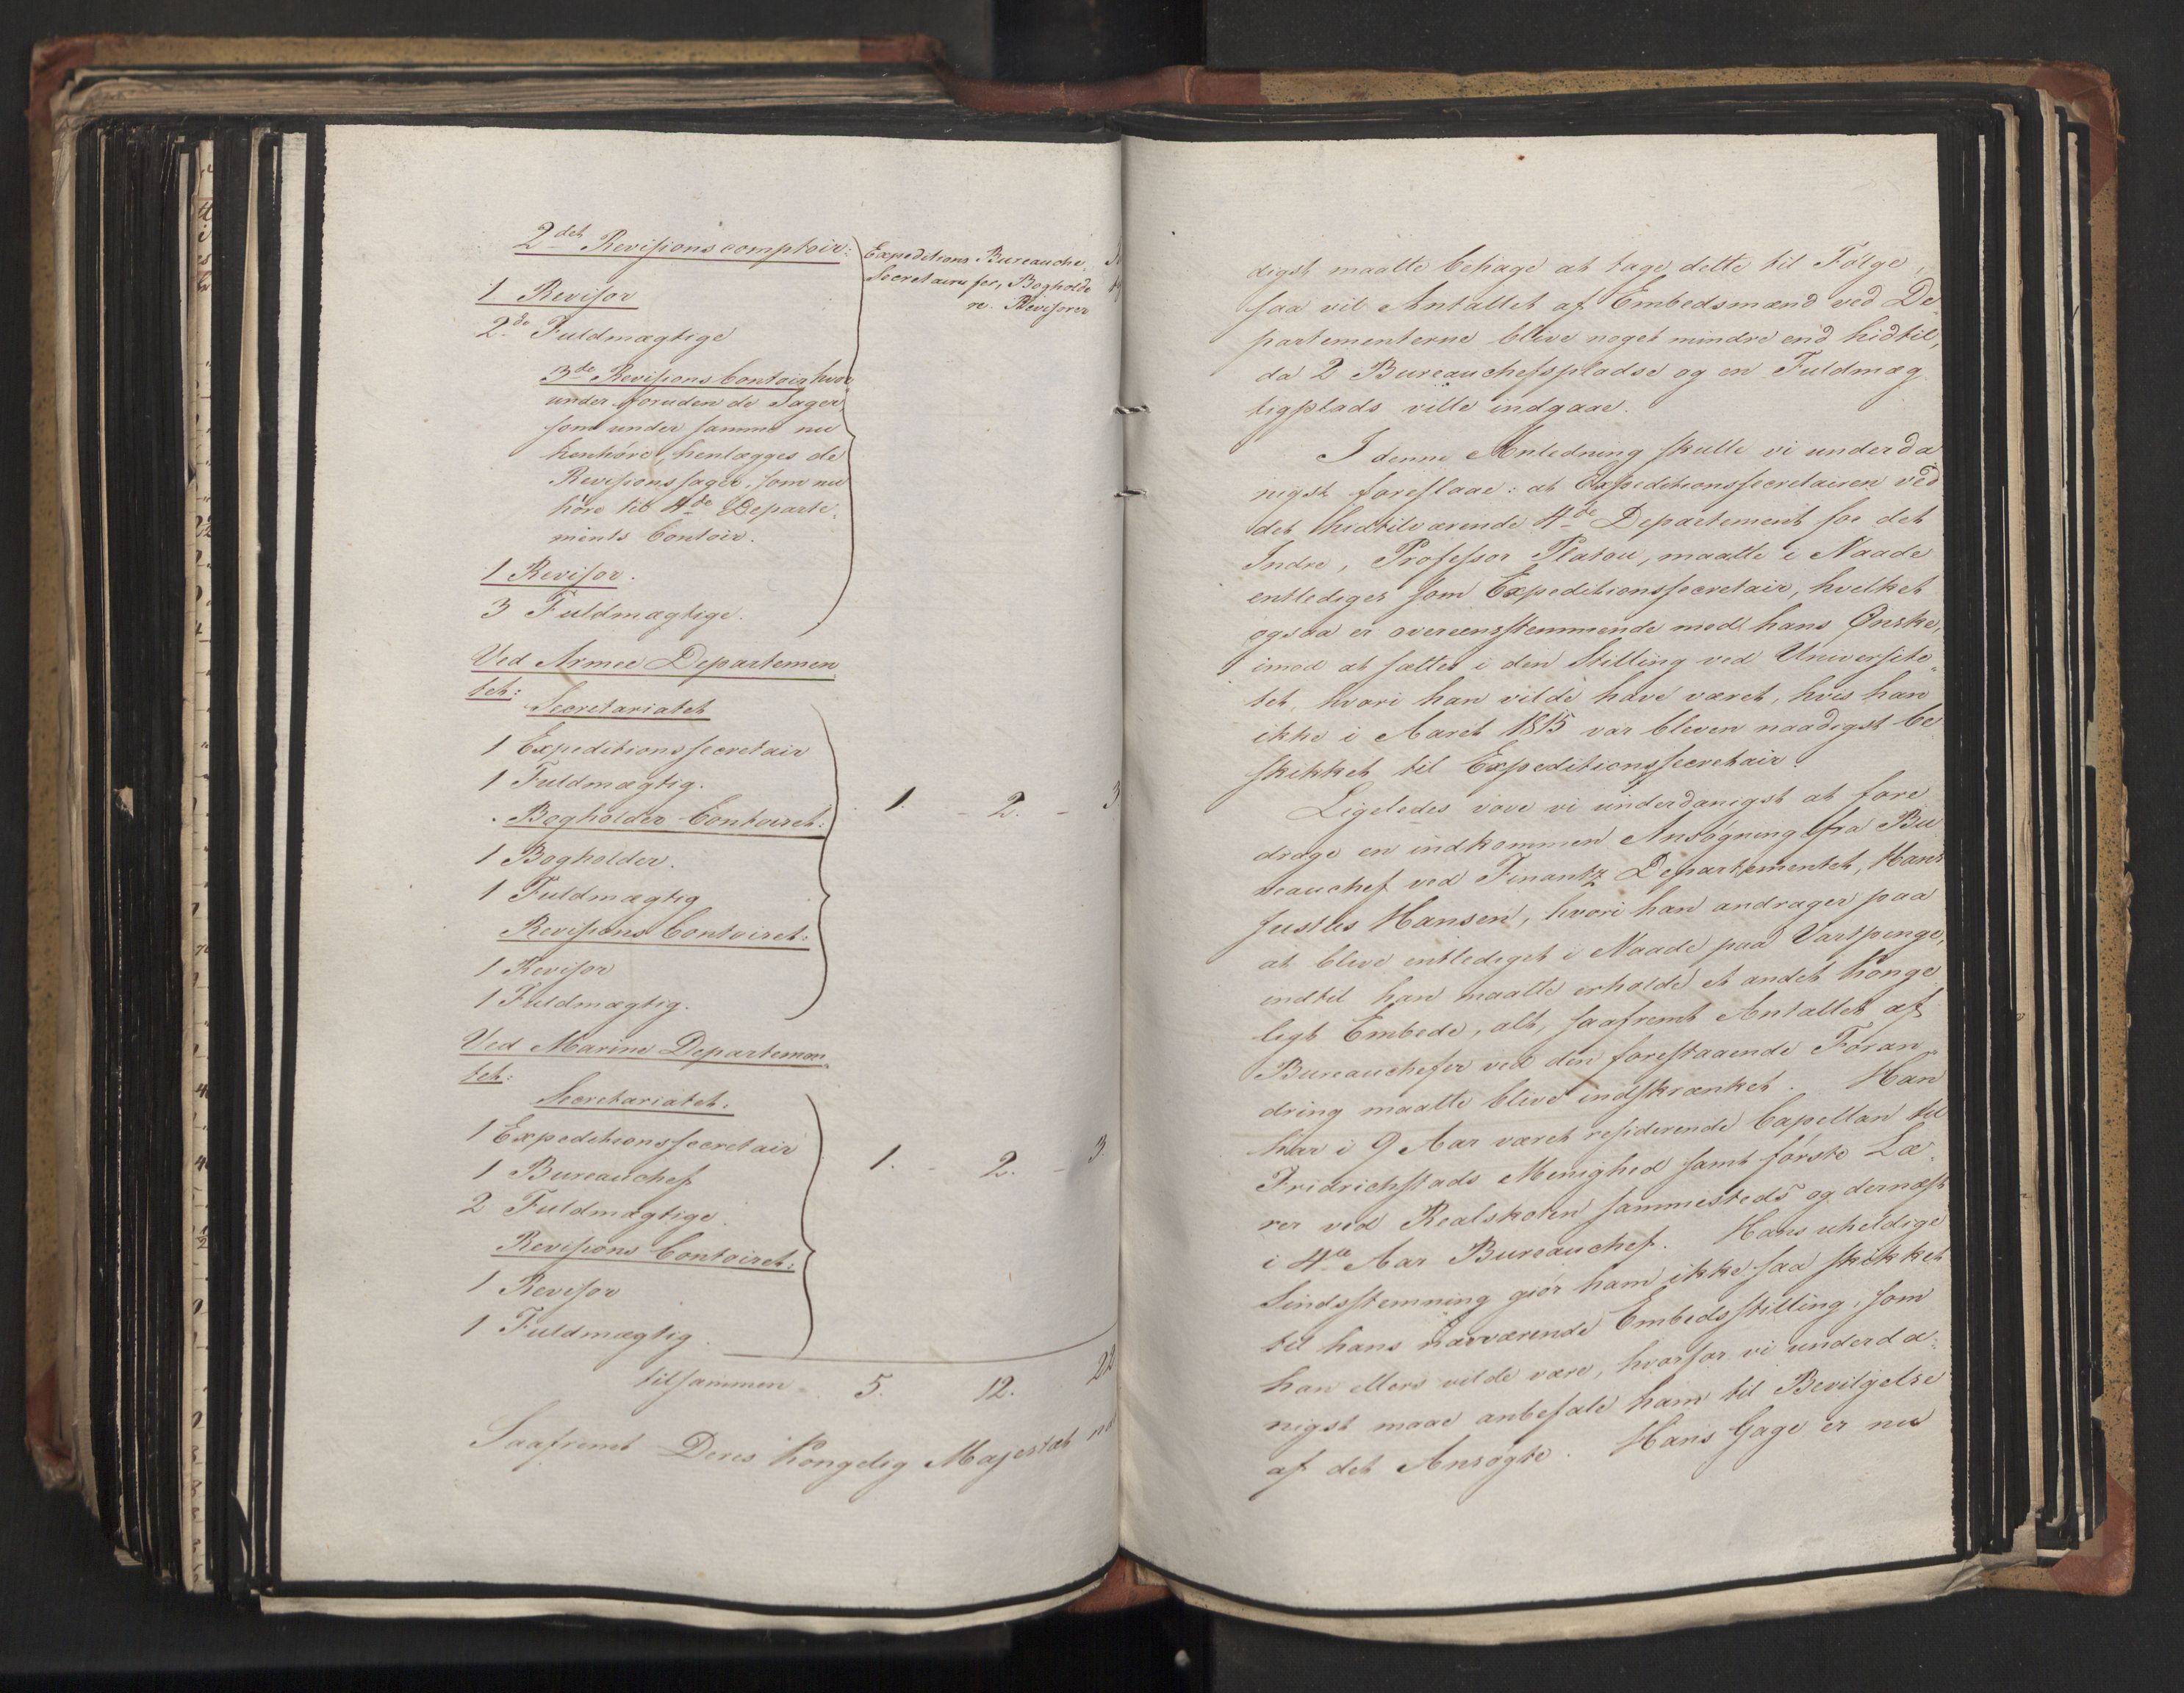 2det Revisionscomptoir:
Expeditions Bureauche
Secretairer fer, Bogholde
re. Revisorer
1 Revisor
2de Fuldmægtige
3de Revisions Contoir, hvor
under foruden de Sager
som under samme nu
henhöre, henlægges de
Revisionssager, som nu
höre til 4de Departe,
ments Contoir.
1 Revisor.
3 Fuldmægtige.
Ved Armee Departemen
tet:
Secretariatet
1 Expeditionssecretair
1 Fuldmægtig.
1. - 2. - 3
Bogholder Contoiret:
1 Bogholder.
1 Fuldmægtig
Revisions Contoiret:
1 Revisor
1 Fuldmægtig.
Ved Marine Departemen
tet:
Secretariatet.
1 Expeditionssecretair
1 Bureauchef
1. - 2. - 3
2 Fuldmægtige
Revisions Contoiret:
1 Revisor
1 Fuldmægtig.
tilsammen 5. 12. 22
Saafremt Deres Kongelig Majestæt na
digst maatte behage at tage dette til Følge,
saa vil Antallet af Embedsmænd ved De
partementerne blive noget mindre end hidtil,
da 2 Bureauchefspladse og en Fuldmæg
tigplads ville indgaae.
I denne Anledning skulle vi underda
nigst foreslaae: at Expeditionssecretairen ved
det hidtilværende 4de Departement for det
Indre, Professor Platou, maatte i Naade
entlediges som Expeditionssecretair, hvilket
ogsaa er overeensstemmende med hans Ønske,
imod at sættes i den Stilling ved Universite„
tet, hvori han vilde have været, hvis han
ikke i Aaret 1815 var bleven naadigst be
skikket til Expeditionssecretair.
Ligeledes vove vi underdanigst at fore
drage en indkommen Ansøgning fra Bu
reauchef ved Finantz Departementet, Hans
Justus Hansen, hvori han andrager paa
at blive entlediget i Naade paa Vartpenge,
indtil han maatte erholde et andet Konge
ligt Embede, alt, saafremt Antallet af
Bureauchefer ved den forestaaende Foran„
dring maatte blive indskrænket. Han
har i 9 Aar været residerende Capellan til
Fridrichstads Menighed samt förste Læ„
rer ved Realskolen sammesteds og dernæst
i 4de Aar Bureauchef. Hans uheldige
Sindsstemning giör ham ikke saa skikket
til hans nærværende Embedsstilling, som
han ellers vilde være, hvorfor vi underda„
nigst maae anbefale ham til Bevilgelse
af det Ansøgte. Hans Gage er nu